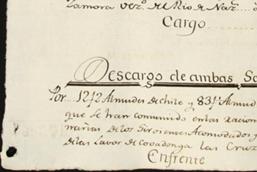 Zamora vez.º del Rio de Naz.
Cargo
Descargo de ambas
Por 12½ Almudes de chile y 83½ Almud
que se han comunido en las racion
marias de los Sirvientes Acomodados y
Labor de Covadonga las Cruz
Enfrente